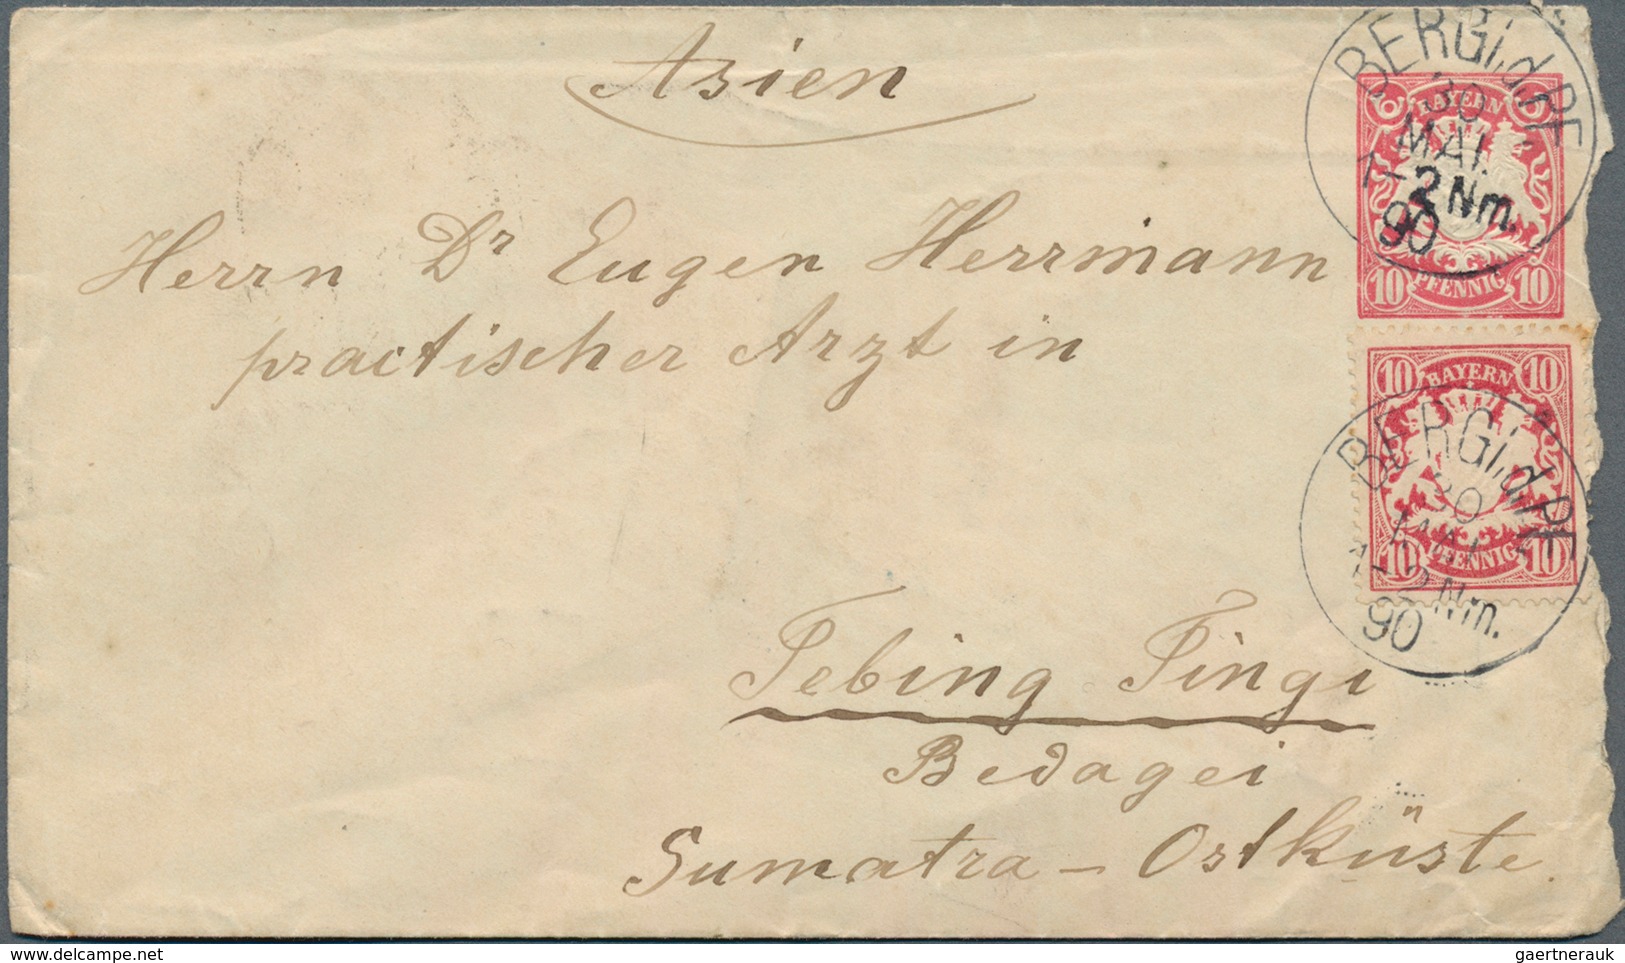 Asien
BERG i.d.PF.
30
MAI.
1-2Nm.
90
BAYERN
10 PFENNIG 10
Herrn Dr Eugen Herrmann
practischer Arzt in
10 BAYERN 10
BERG i.d.PF.
30
MAI
1-2Nm.
90
10 PFENNIG 10
Tebing Tingi
Bedagei
Sumatra - Ostküste.
www.delcampe.net
gaertnerauk